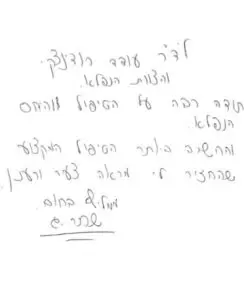 לד"ר עודד רודניצקי
והצוות הנפלא.
תודה רבה על הטיפול והיחס
הנפלא.
והחשוב ביותר הטיפול המקצועי
שהחזיר לי מראה צעיר ורענן.
בחום